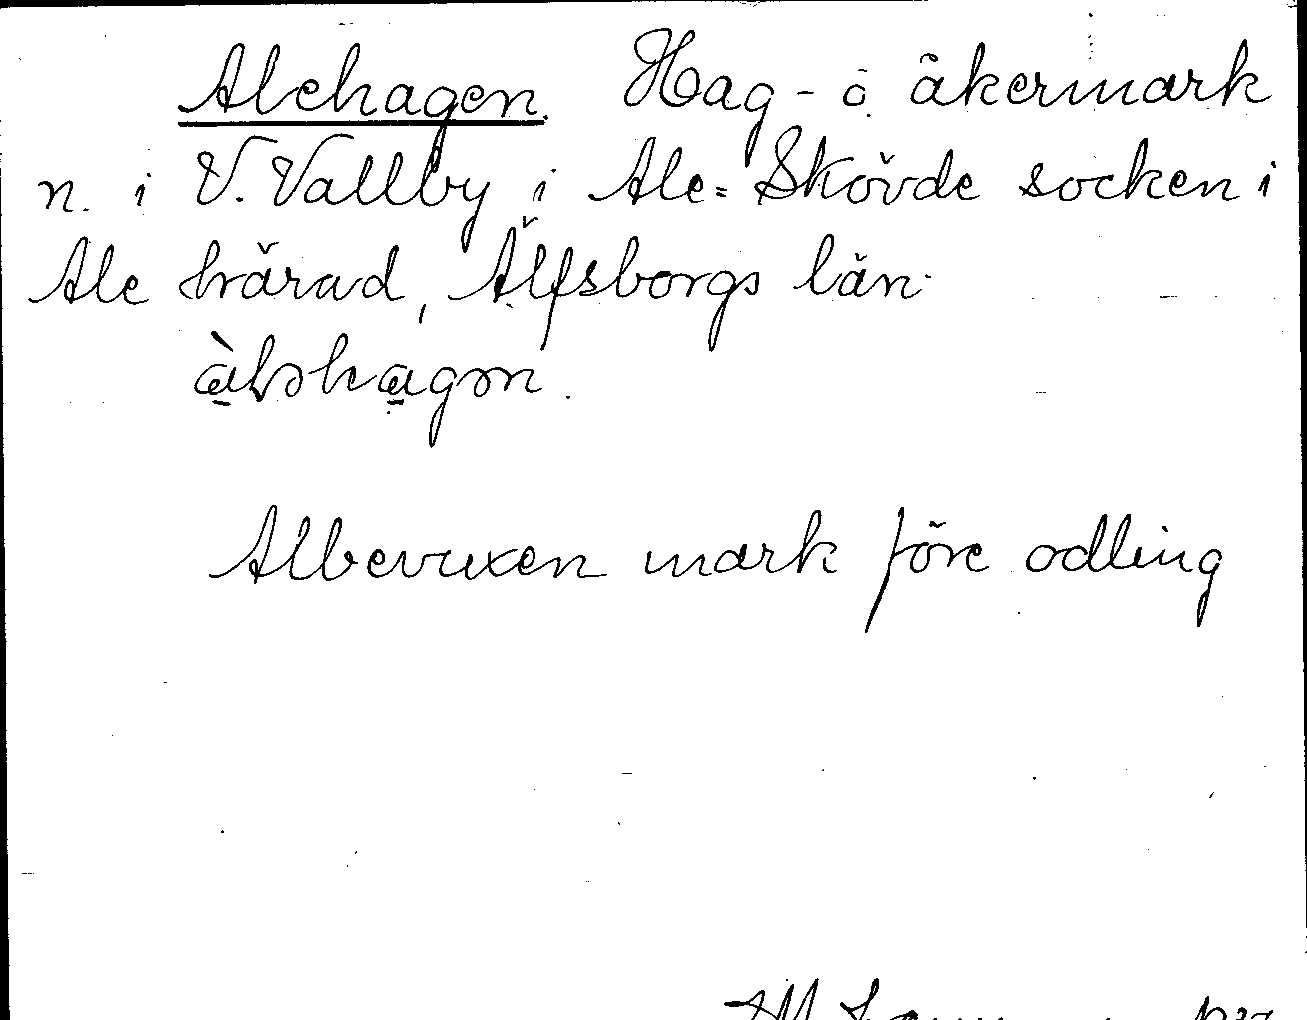 Alehagen. Hag- o. åkermark
n. i V. Vallby i Ale-Skövde socken i
Ale härad, Älfsborgs län.
àlǝhagǝn.
Albevuxen mark före odling